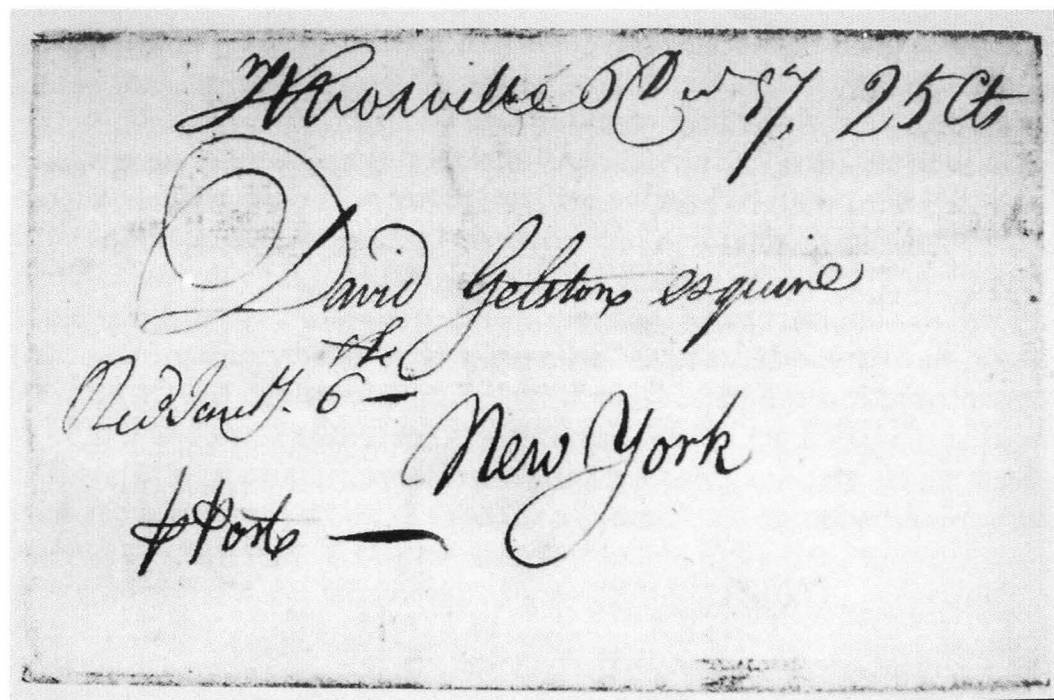 Knoxville Decr 97. 25 Cts
David Gelston esquire
the
Recd Jany. 6 —
New York
p Post —